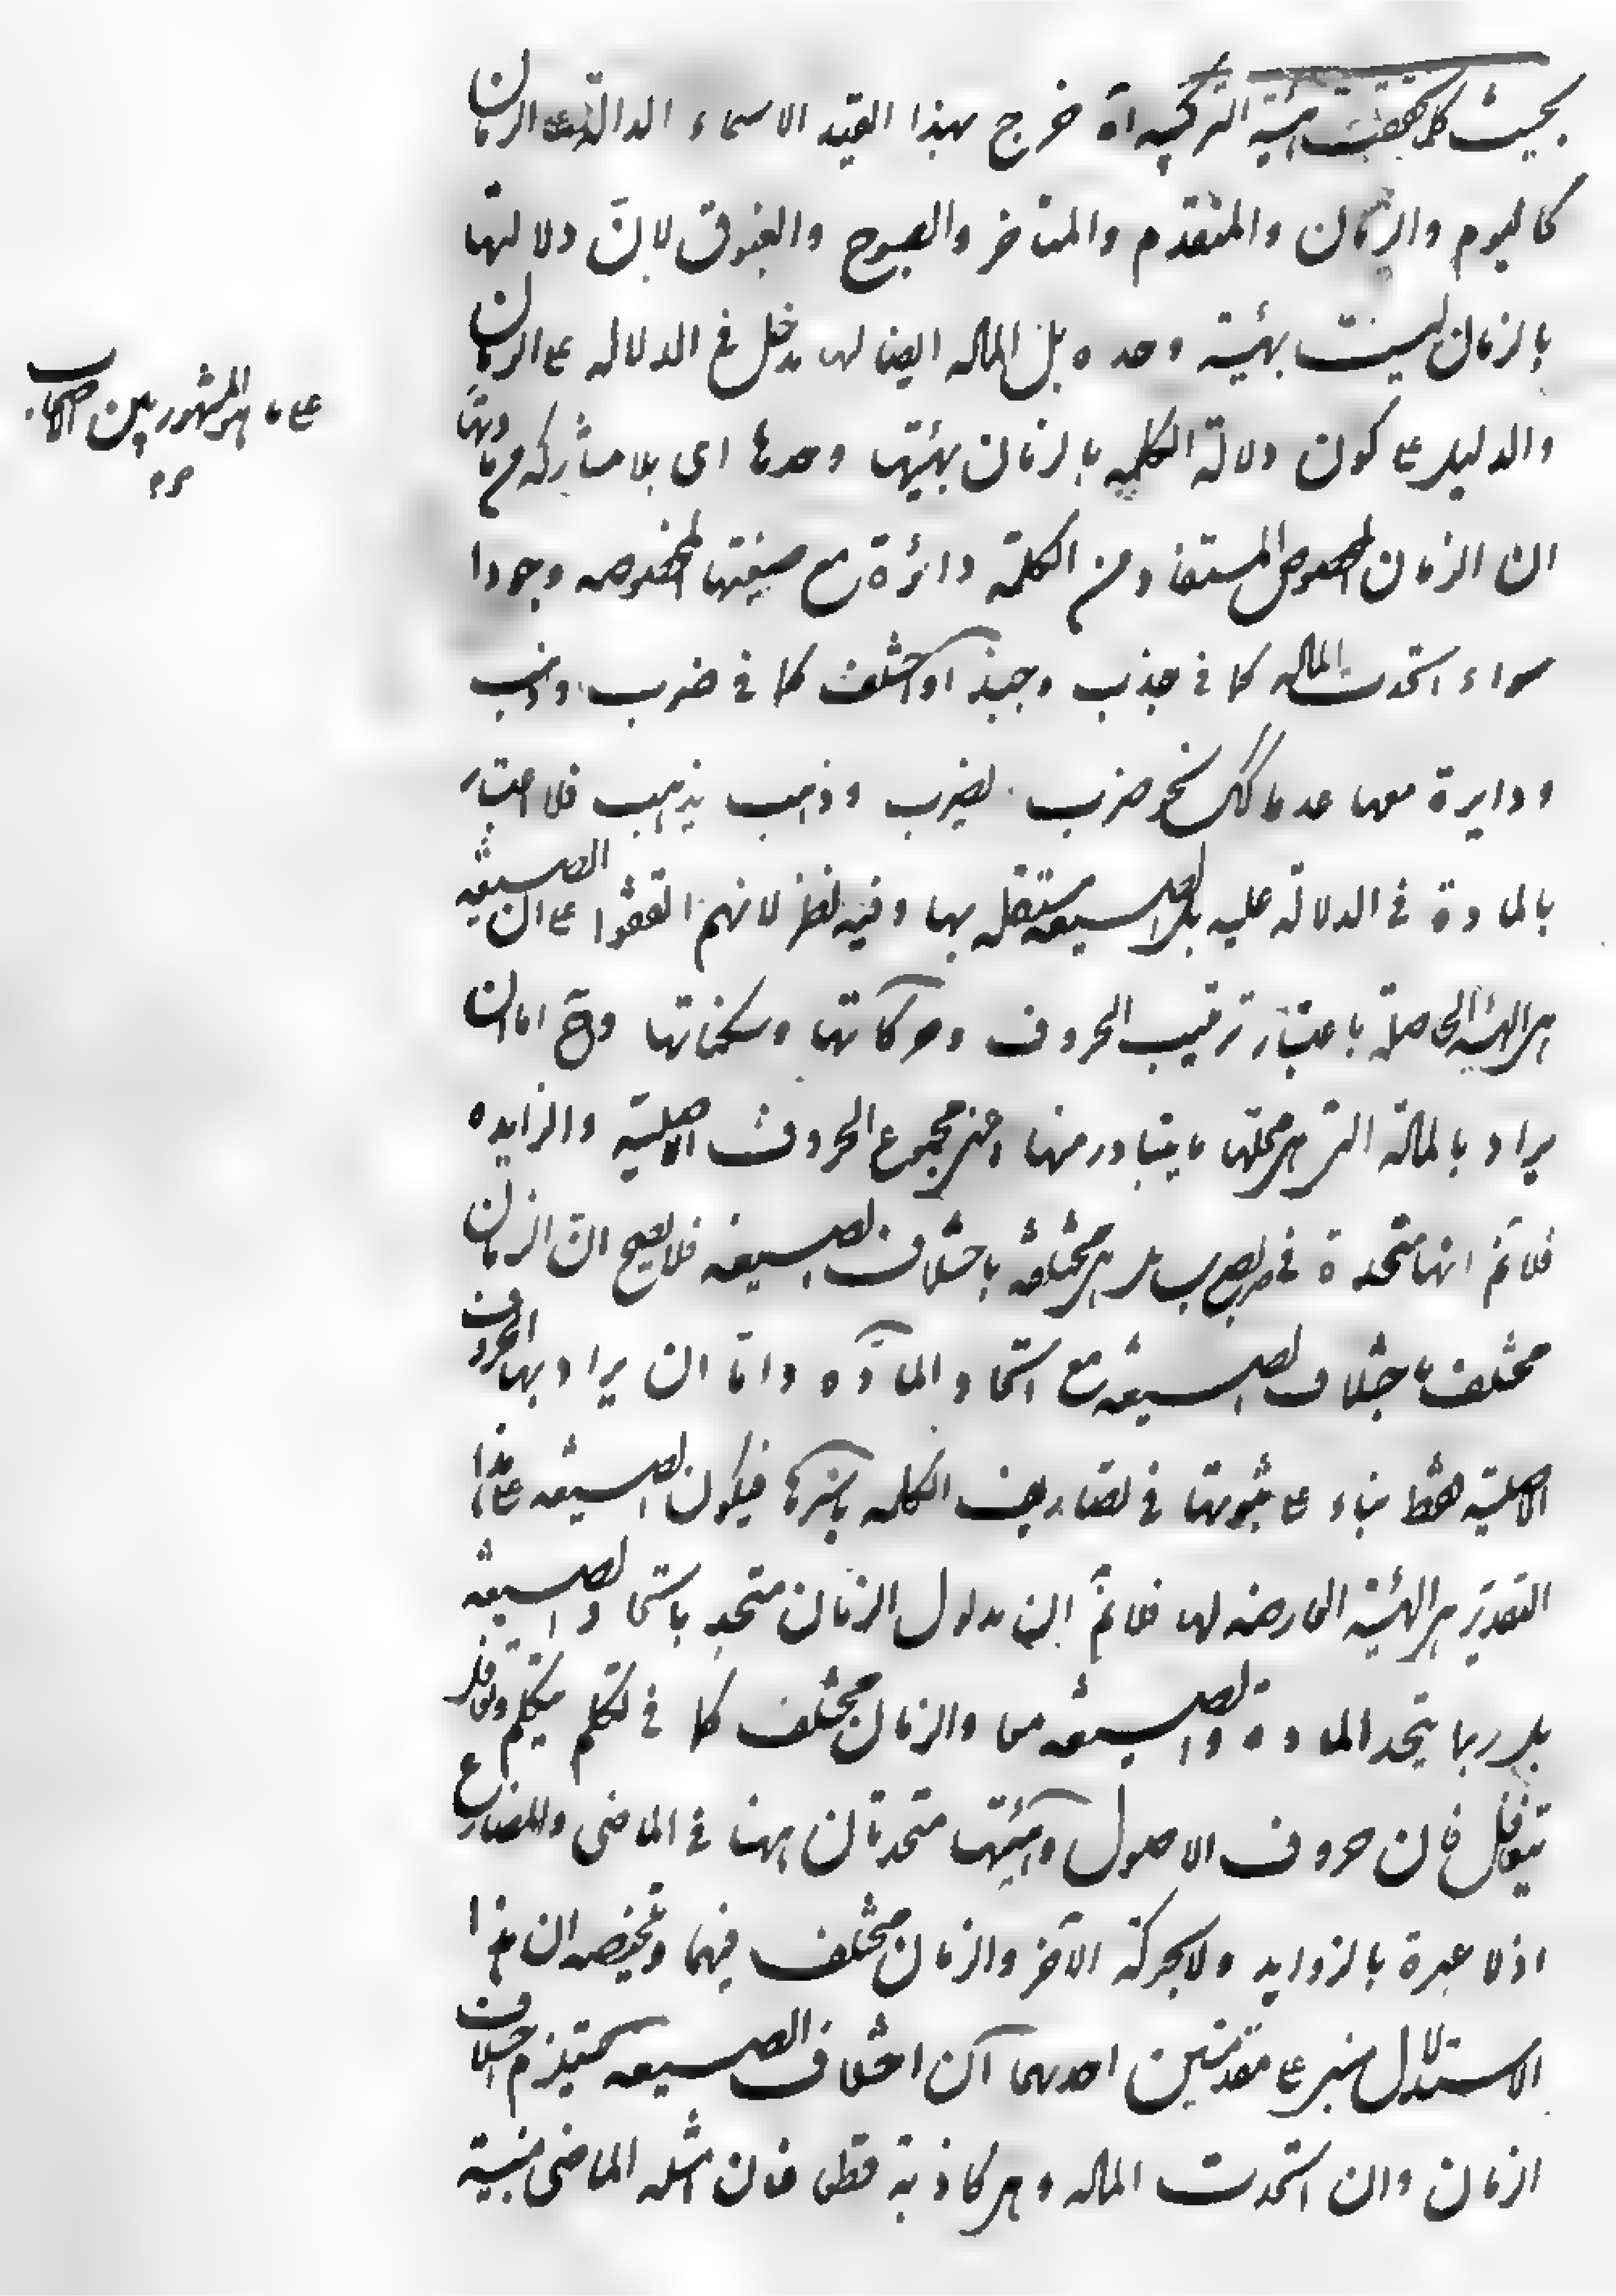 بحيث كلما تحققت هيئة التركيبية آه خرج بهذا القيد الاسماء الدالة ع الزمان
كاليوم والزمان والمتقدم والمتاخر والصبوح والغبوق لانّ دلالتها
بالزمان ليست بهيئته وحده بل المادة ايضا لها مدخل في الدلالة ع الزمان
والدليل ع كون دلالة الكلمة بالزمان بهيئتها وحدها اى بلا مشاركة مع مادتها
ان الزمان المخصوص المستفاد من الكلمة دائرة مع صيغتها المخصوصه وجودا
سواء اتحدت المادة كما في جذب وجبذ او اختلف كما في ضرب وذهب
ودايرة معها عدما كك نحو ضرب يضرب وذهب يذهب فلا اعتبار
بالمادة في الدلالة عليه بل الصيغه مستقله بها وفيه نظر لانهم اتفقوا ع ان الصيغه
هى الهيئة الحاصلة باعتبار ترتيب الحروف وحركاتها وسكناتها وح اما ان
يراد بالمادة التى هى محلها ما يتبادر منها اعنى مجموع الحروف الاصلية والزايده
فلا نم انها متحدة في ضرب يضرب بل هى مختلفة باختلاف الصيغه فلا يصح انّ الزمان
مختلف باختلاف الصيغه مع اتحاد المادّه وامّا ان يراد بها الحروف
الاصلية فقط بناء ع ثبوتها في تصاريف الكلمه باسرها فيكون الصيغه ع هذا
التقدير هى الهيئة العارضه لها فلا نمّ ان مدلول الزمان متحد باتحاد الصيغه
بل ربما يتحد المادة والصيغه معا والزمان مختلف كما في تكلم يتكلم وتغافل
يتغافل فان حروف الاصول وهيئتها متحدتان ههنا في الماضى والمضارع
اذ لا عبرة بالزوايد ولا بحركة الآخر والزمان مختلف فيهما وتلخيصه ان هذا
الاستدلال مبنى ع مقدمتين احدهما ان اختلاف الصيغه يستلزم اختلاف
الزمان وان اتحدت المادة وهى كاذبة قطعا فان امثلة الماضى مبنية
ع ما هو المشهور بين الاصحاب